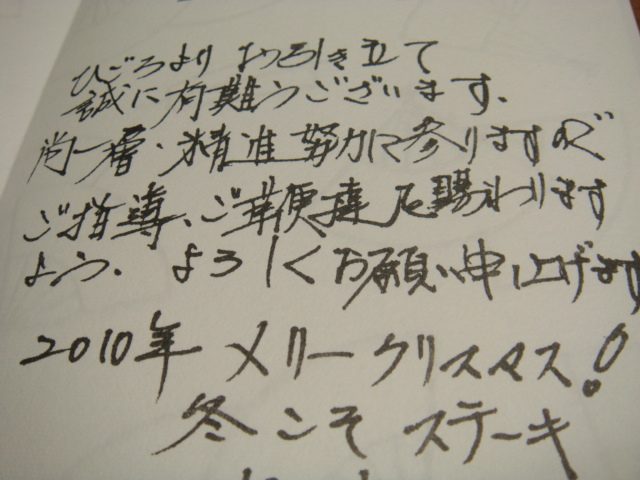 ひごろより お引き立て
誠に有難うございます.
尚一層、精進努力に参りますので
ご指導、ご鞭撻を賜わります
よう. よろしくお願い申し上げます
2010年 メリークリスマス!
冬こそ ステーキ